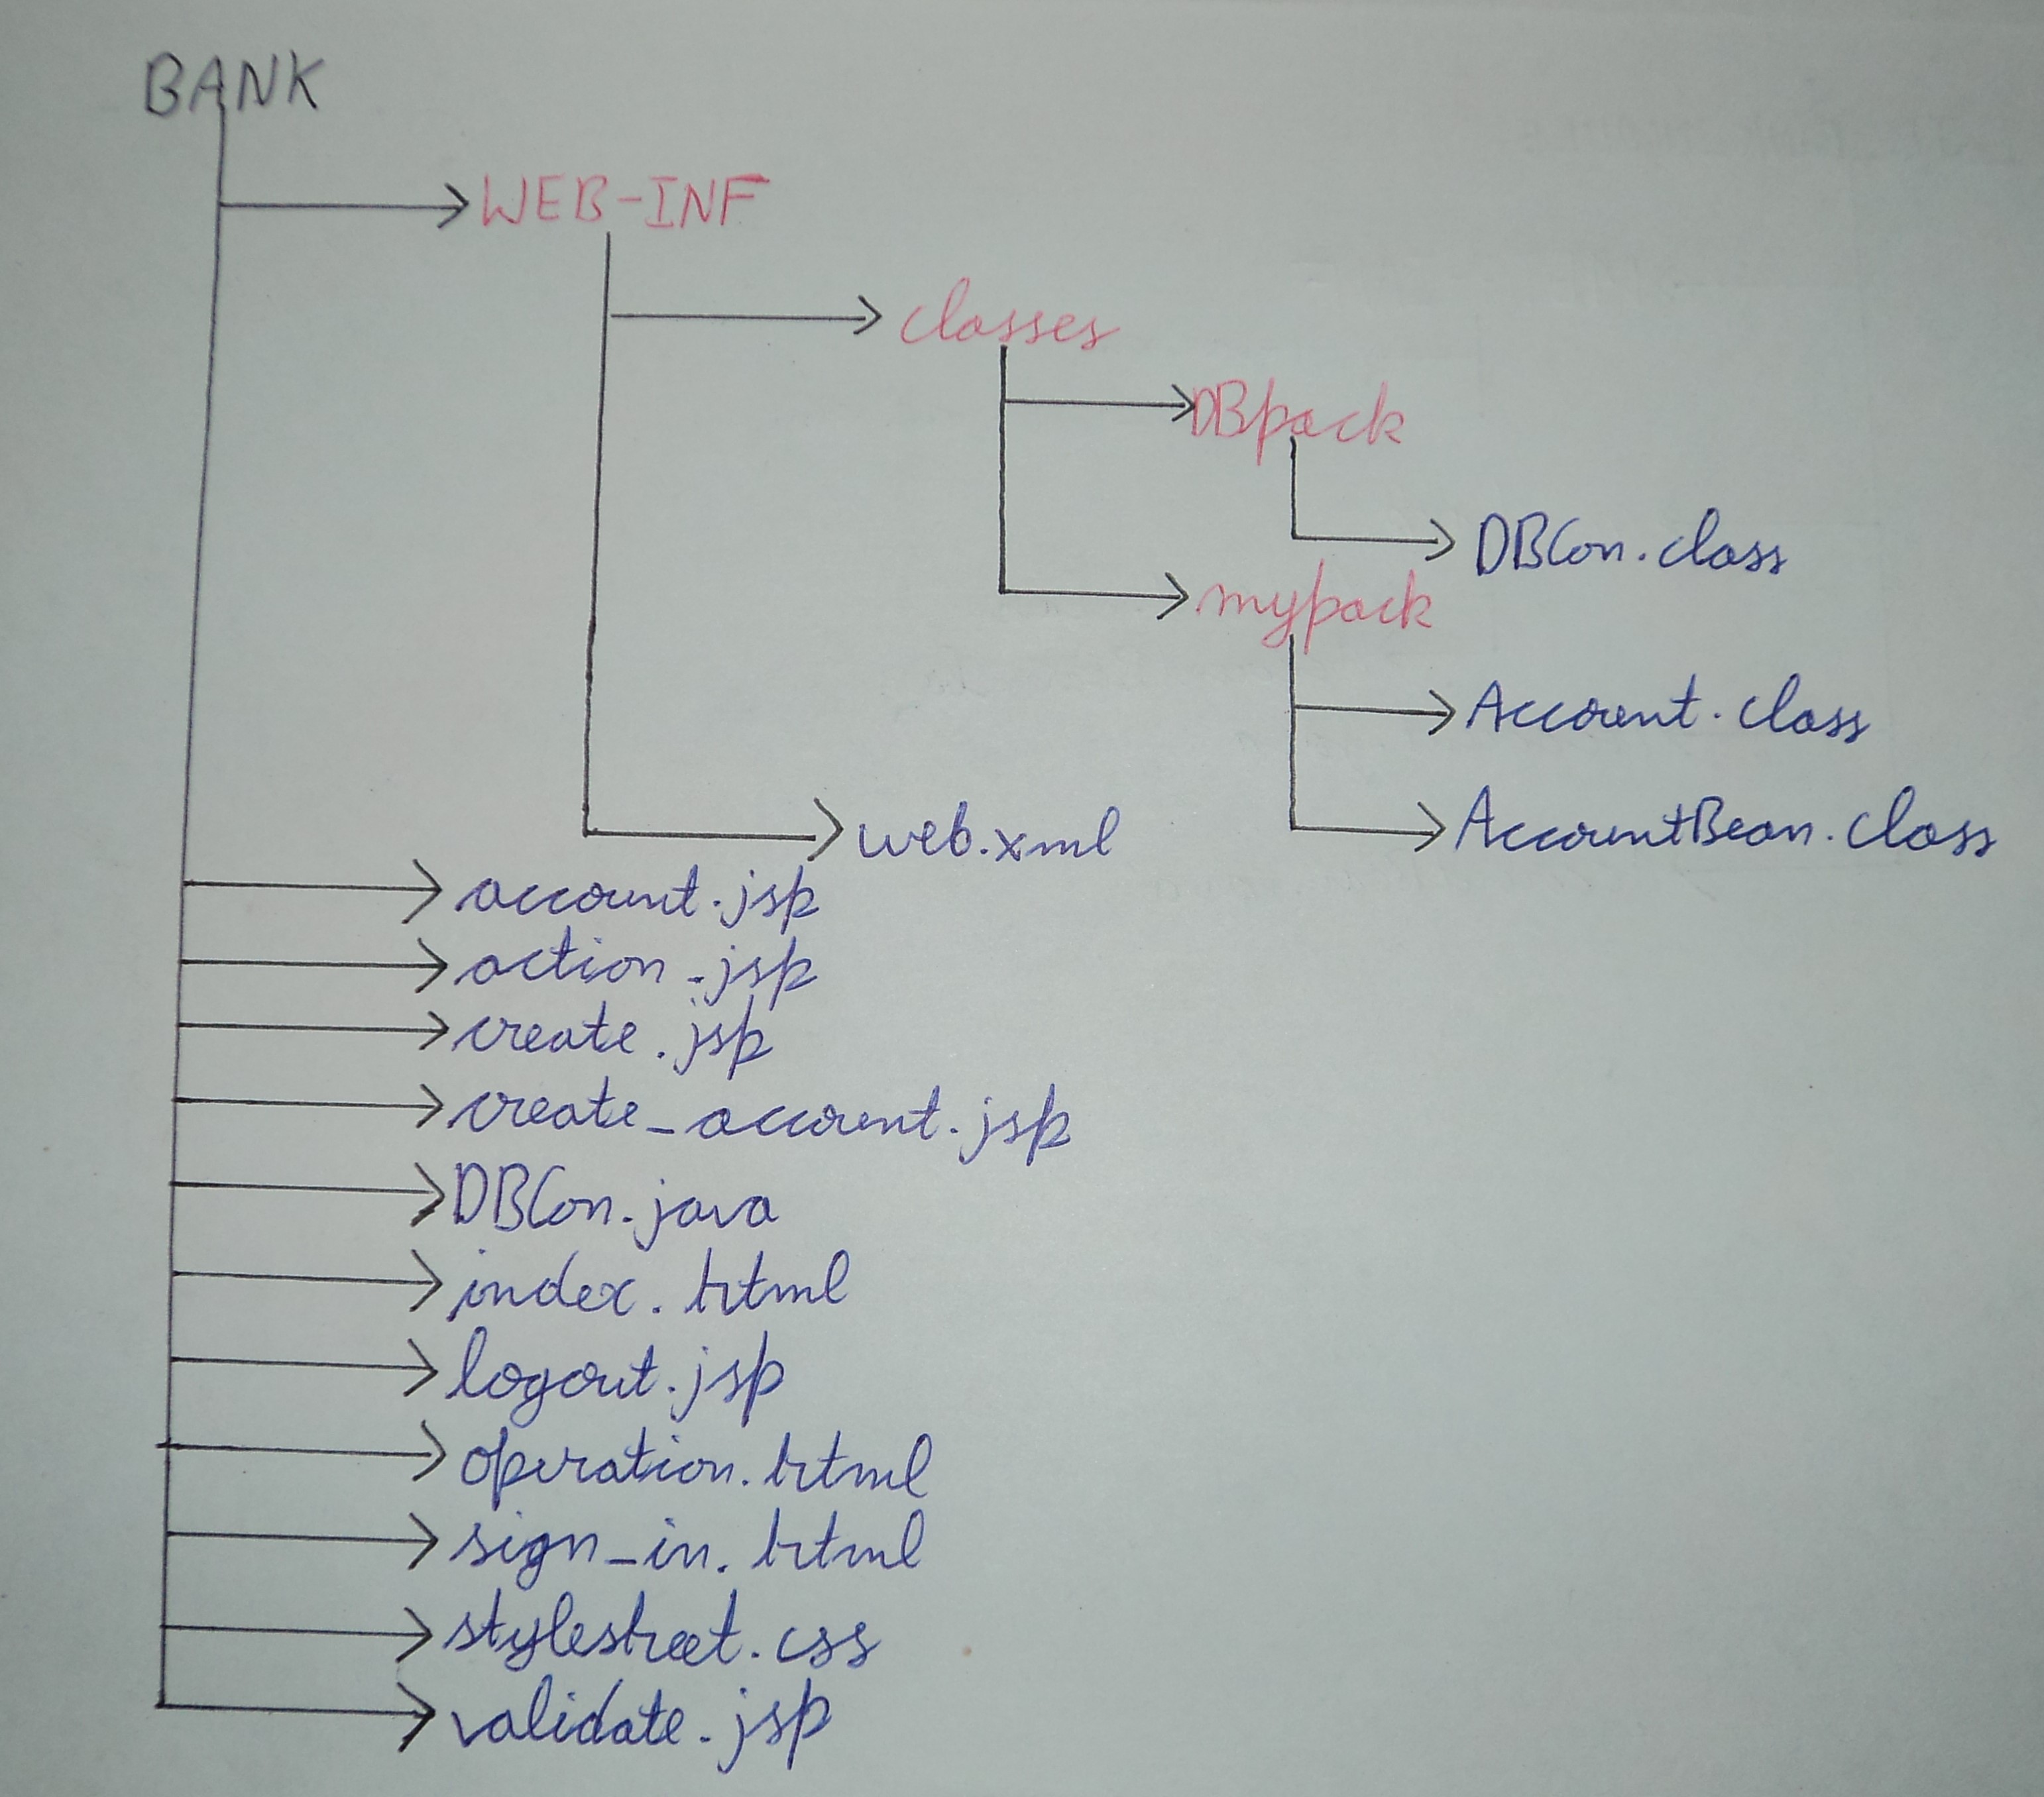 BANK
WEB-INF
classes
DBpack
DBCon.class
mypack
Account.class
AccountBean.class
web.xml
account.jsp
action.jsp
create.jsp
create_account.jsp
DBCon.java
index.html
logout.jsp
operation.html
sign_in.html
stylesheet.css
validate.jsp